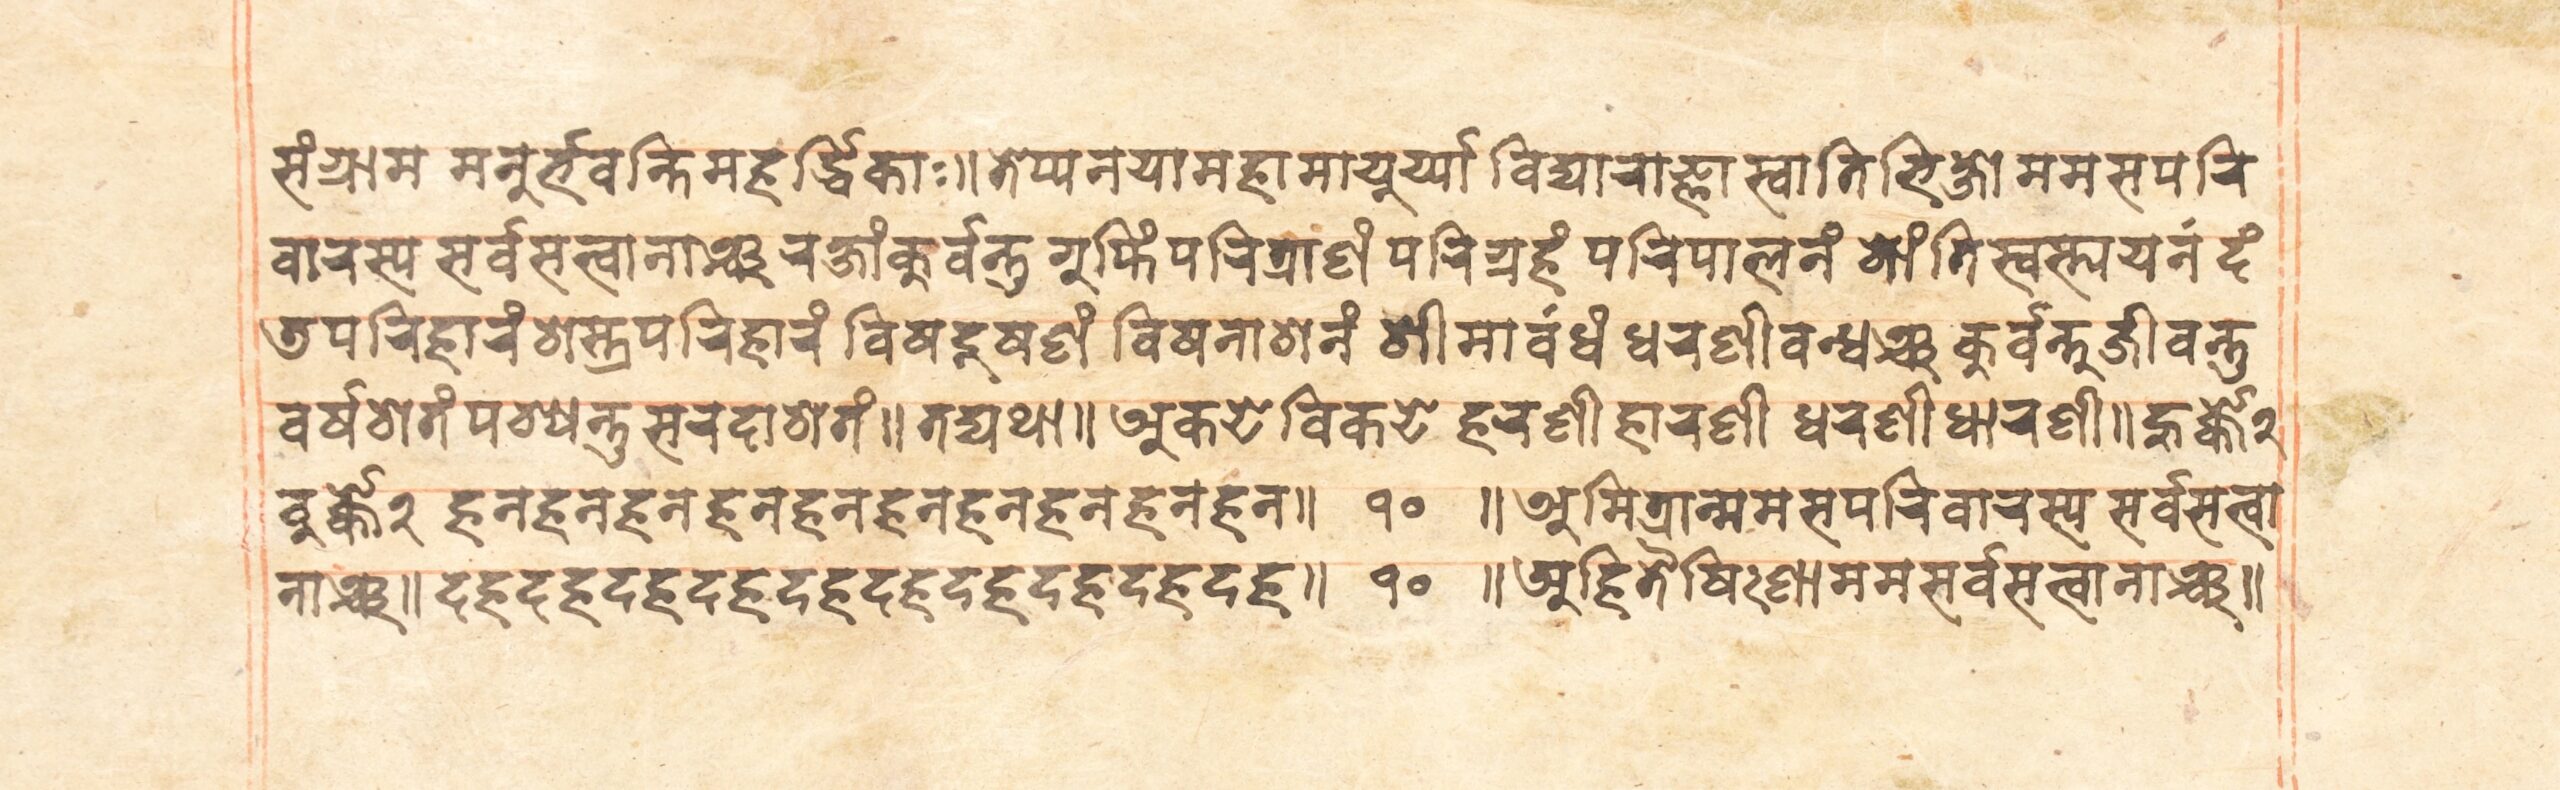 संग्राम मनुर्भवन्ति महर्द्धिकाः॥ तेप्यनया महामायुर्य्या विद्याराज्ञा स्वातिभिक्षो मम सपरि
वारस्य सर्वसत्वानाञ्च रक्षां कुर्वन्तु गुप्तिं परित्राणं परिग्रहं परिपालनं शांति स्वस्त्ययनं दं
ड परिहारं शस्त्रपरिहारं विषदूषणं विषनाशनं शीमावंधं धरणीवन्धञ्च कुर्वन्तु जीवन्तु
वर्षशतं पश्यन्तु सरदाशतं॥ तद्यथा॥ अकटे विकटे हरणी हारणी धरणी धारणी॥ हुर्क्के २
वुर्क्के २ हन हन हन हन हन हन हन हन हन हन॥ १० ॥ अमित्रान्मम सपरिवारस्य सर्वसत्वा
नाञ्च॥ दह दह दह दह दह दह दह दह दह दह॥ १० ॥ अहितैषिःणा मम सर्वसत्वानाञ्च॥